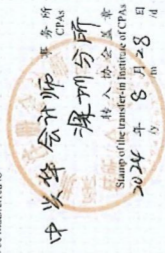 中兴华会计师 事务所
CPAs
深圳分所
转入协会盖章
Stamp of the transfer-in Institute of CPAs
2024 年 8 月 28 日
/y /m /d